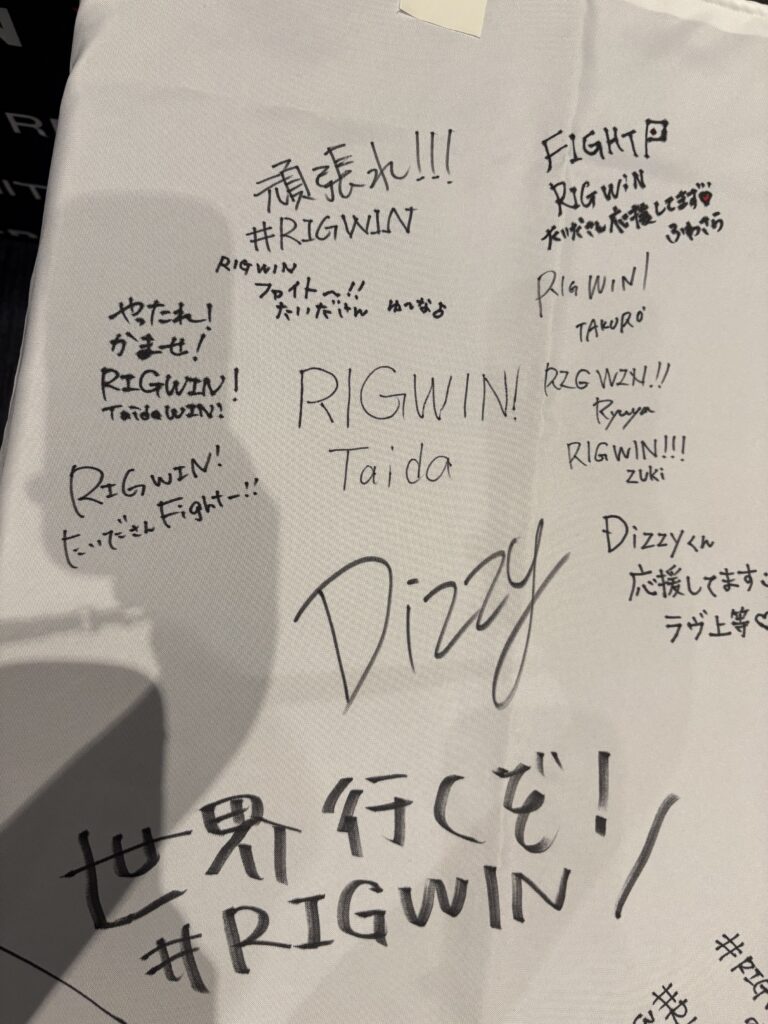 頑張れ!!!
#RIGWIN
RIGWIN
ファイト〜!!
たいだしゃん ゆなな
FIGHT
RIGWIN
たいださん応援してます
ふわさら
RIGWIN!
TAKURO
やったれ!
かませ!
RIGWIN!
TaidaWIN!
RIGWIN!
Taida
RIGWIN!!
Ryuya
RIGWIN!!!
ZUKI
RIGWIN!
たいださん Fightー!!
Dizzy
Dizzyくん
応援してます
ラヴ上等♡
世界行くぞ!
#RIGWIN
#RIGW
#RI